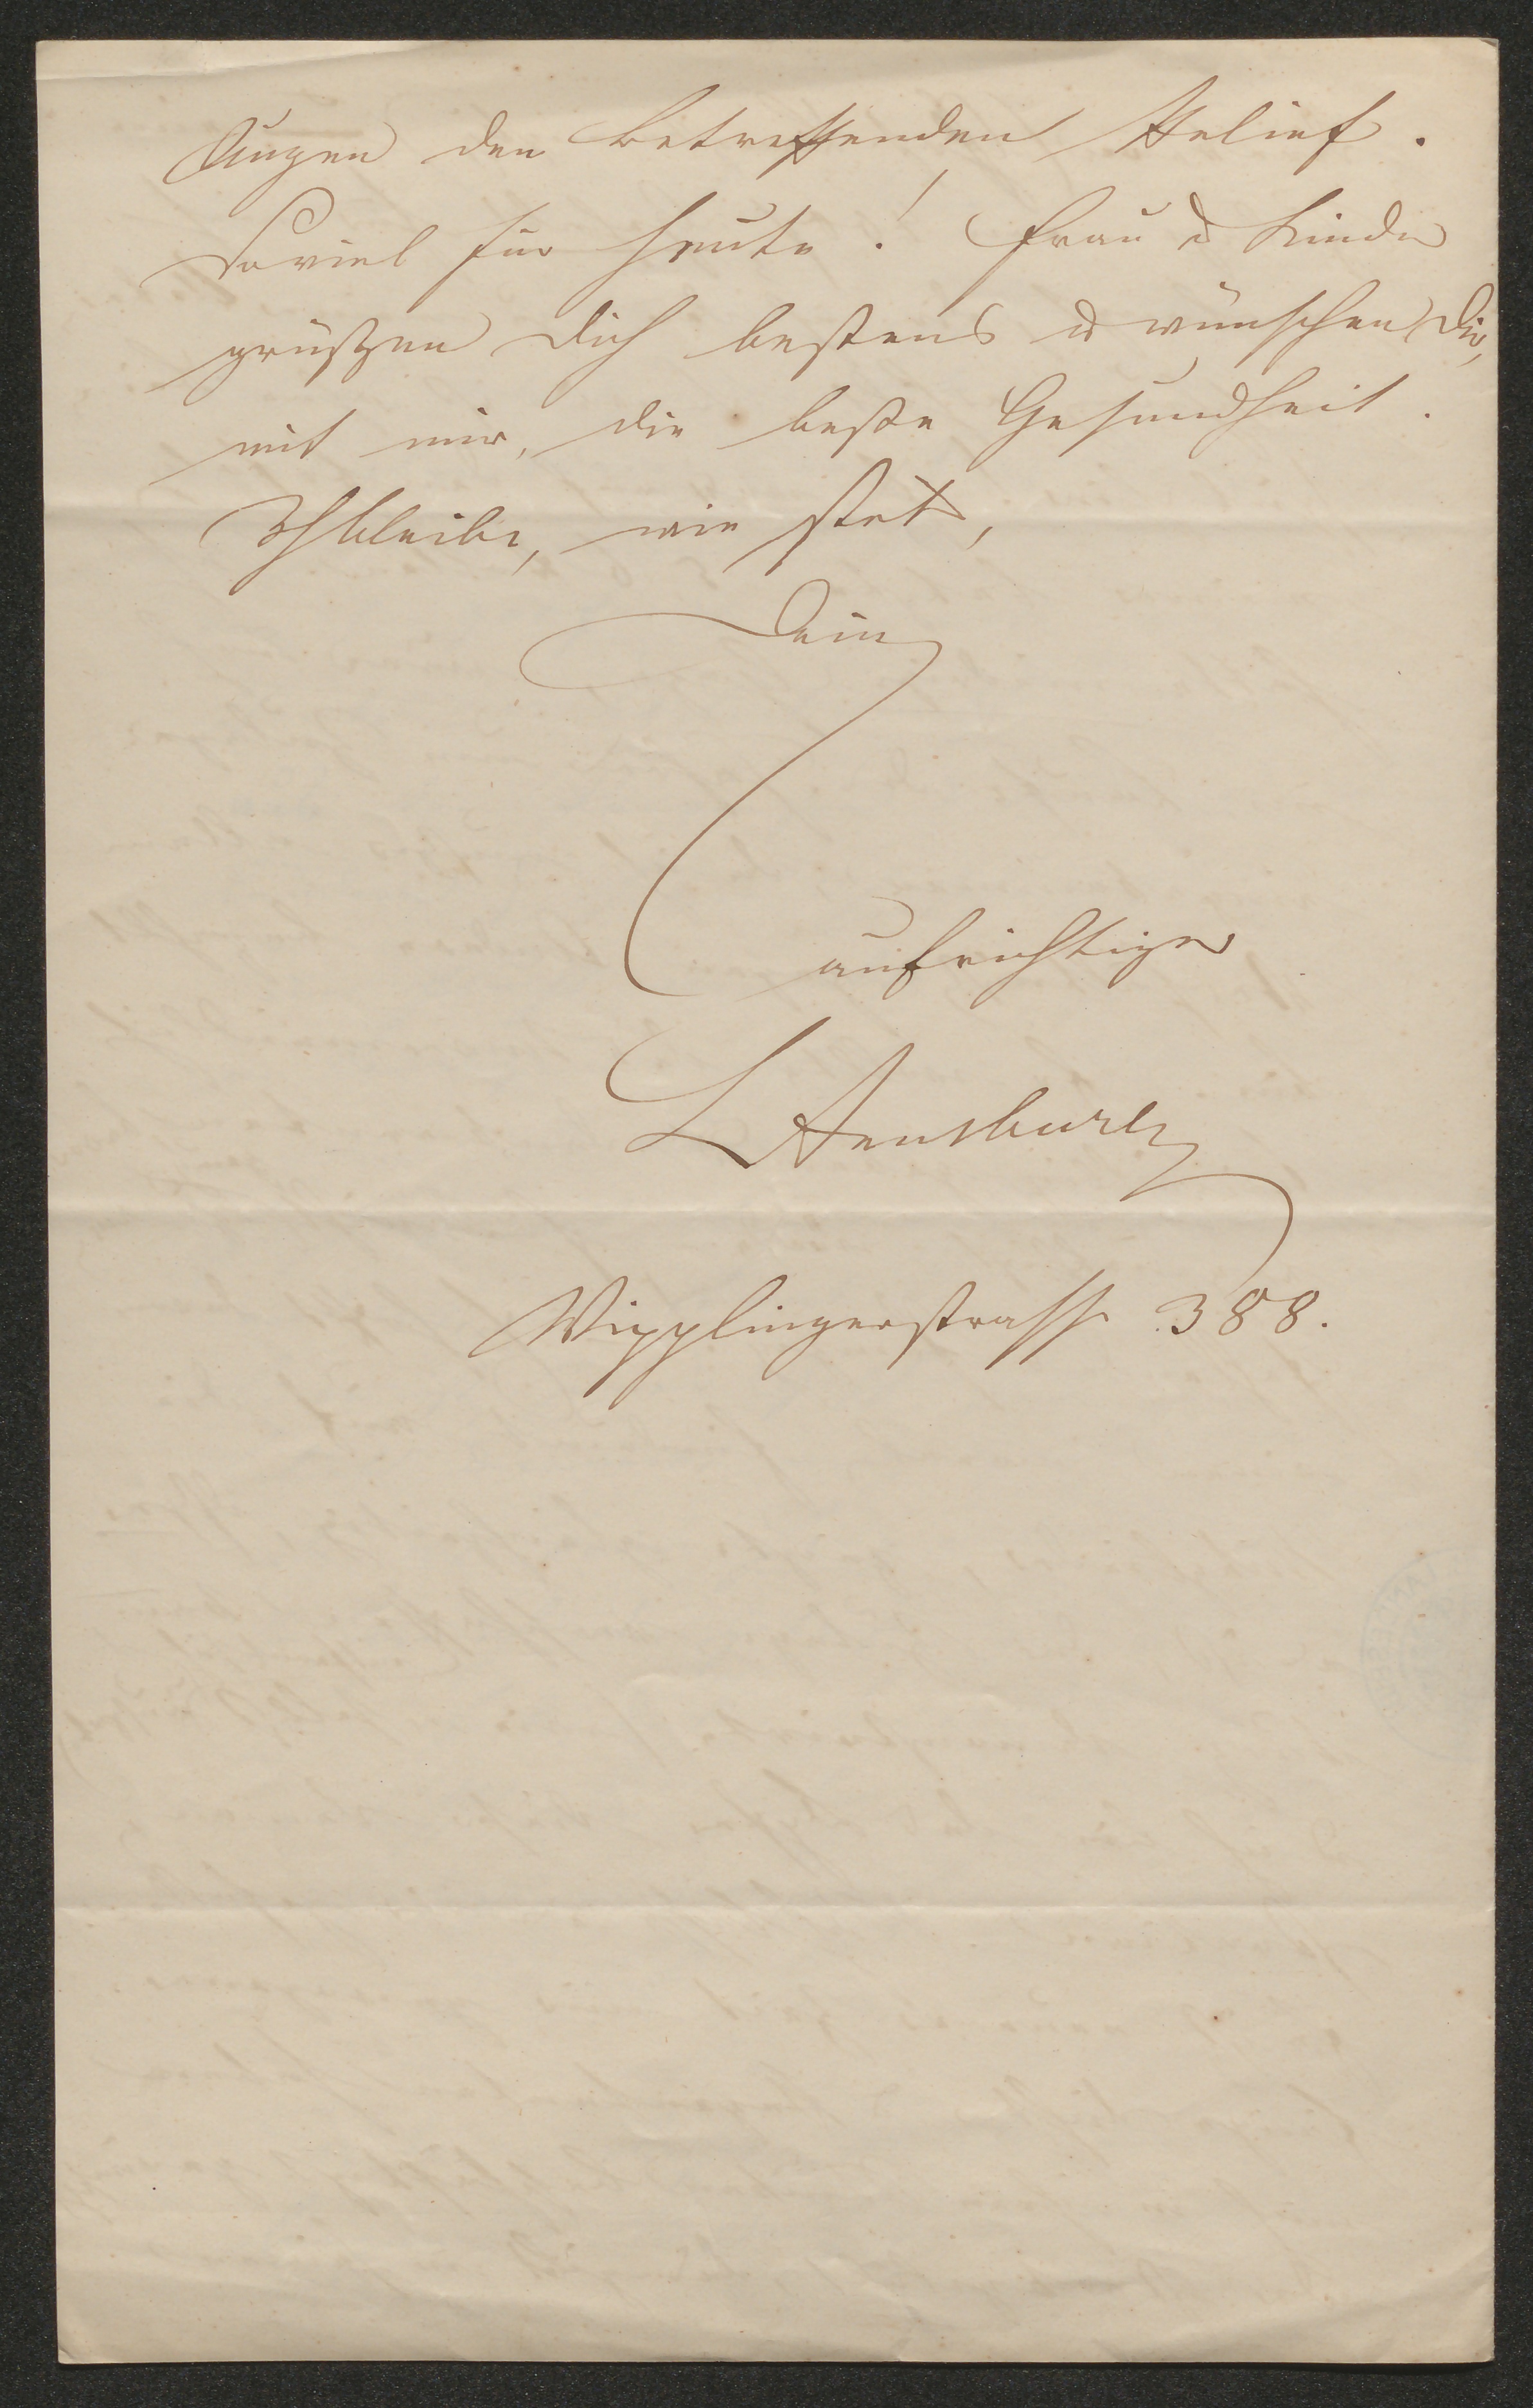 Augen den betreffenden Relief.
Soviel für heute! Frau & Kinder
grüßen Dich bestens & wünschen Dir,
mit mir, die beste Gesundheit.
Ich bleibe, wie stets,
Dein
aufrichtiger
L
Wipplingerstrasse 388.